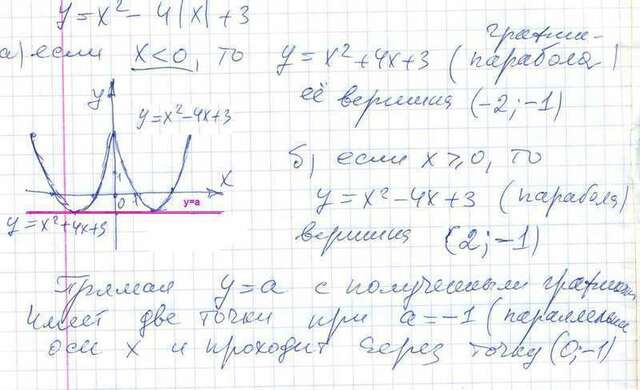 y = x² - 4|x| + 3
а) если x<0, то y = x² + 4x + 3 (парабола)
графи-
её вершина (-2; -1)
y
y = x² - 4x + 3
x
1
0 1
y=a
y = x² + 4x + 3
б) если x ⩾ 0, то
y = x² - 4x + 3 (парабола)
вершина (2; -1)
Прямая y = a с полученным графиком
имеет две точки при a = -1 (параллельна
оси x и проходит через точку (0; -1)